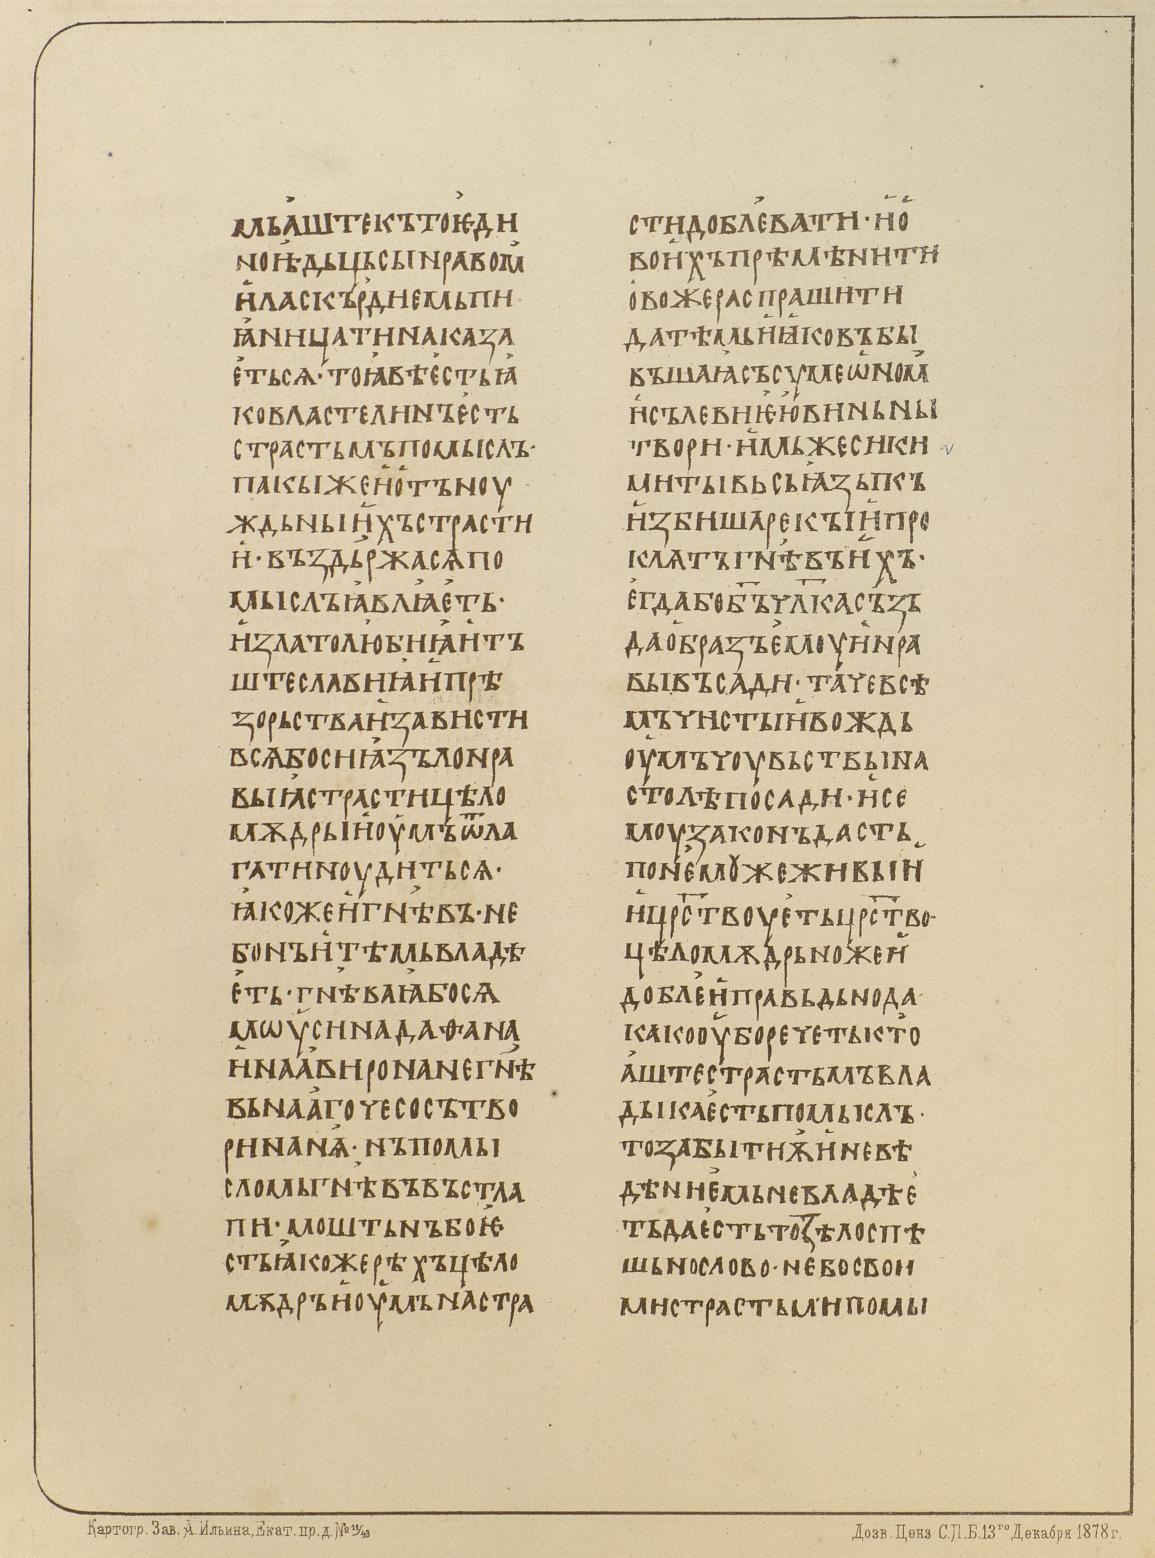 мьаштекътоѥди
ноѥдьцьсынравом҄
и҄ласкър҄диемьпи
ꙗницатинаказа
е҄тьсѧ·тоꙗвѣе҄стьꙗ
ковластелинъе҄сть
страстьмъпомыслъ·
пакыжеи҄о҄тъноу
ждьныи҄хъстрасти
и҄·въздьржасѧпо
мыслъꙗвлꙗе҄ть·
и҄златолюбиꙗи҄тъ
штеславиꙗи҄прѣ
зорьстваи҄зависти
всѧбосиꙗзълонра
выꙗстрастицѣло
мѫдрыи҄оу҄мъѿла
гатиноудитьсѧ·
ꙗкожеи҄гнѣвъ·не
бонъи҄тѣмьвладѣ
е҄ть·гнѣваꙗбосѧ
мѡѵсинадаѳана
и҄наа҄виронанегнѣ
вьнаа҄гочесосътво
ринанѧ·нъпомы
сломьгнѣвъвъстла
пи·моштьнъбоѥ
стьꙗкожерѣхъцѣло
мѫдръи҄оу҄мънастра
стидоблевати·и҄о҄
вои҄хъпрѣмѣнити
о҄вожераспрашити
датѣмьи҄ꙗковъбы
въшаꙗсъсѵмеѡ҄ном҄
и҄сълевиѥю҄виньны
твори·и҄мьжесики
митывьсьꙗзьпсъ
и҄збишарекъıи҄про
клѧтъгнѣвъи҄хъ·
е҄гдабоб҃ъчл҃касъзъ
дао҄бразъе҄моуи҄нра
вывъсади·та҄чевсѣ
мъчистыи҄вождь
оу҄мъчоувьствына
столѣпосади·и҄се
моузаконъдасть
поне҄мꙋжеживыи҄
и҄црс҃твоуе҄тьцрс҃тво·
цѣломѫдрьножеи҄
доблеи҄правьдьнода
какооу҄боречетькто
а҄штестрастьмъвла
дыкае҄стьпомыслъ·
тозабытиѫи҄невѣ
дѣние҄мьневладѣе҄
тьдае҄стьтозѣлоспѣ
шьнослово·небосвои
мистрастьмипомы
Картогр. Зав. А. Ильина, Екат. пр. д. № 11/43
Дозв. Ценз С.П.Б. 13го Декабря 1878 г.